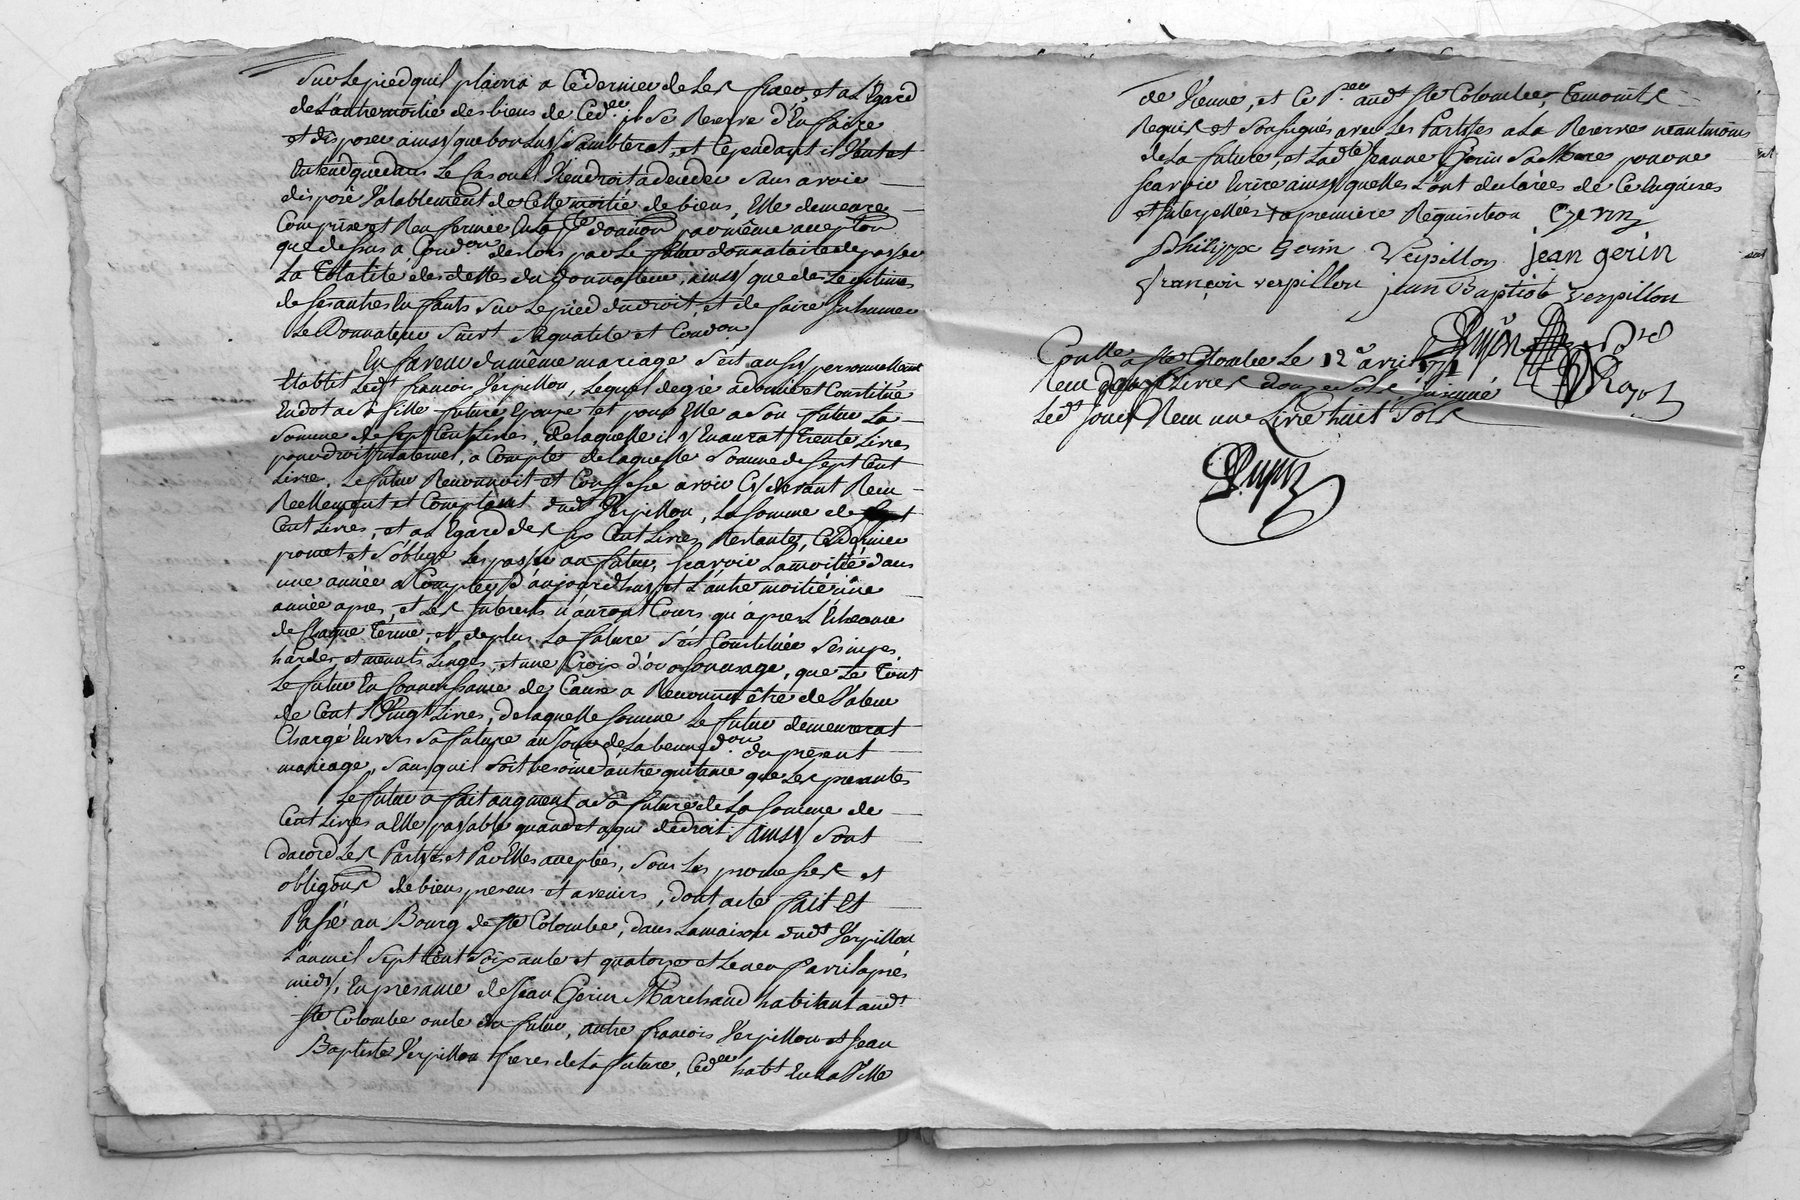 Sur le pied quil plaira a ce dernier de les fixer, et a l'Egard
de l'autre moitié des biens de Ced.er il se Reserve d'En faire
et disposer ainssy que bon luy Samblerat, et Cependant il Veut et
Entend que dans le Cas ou il Viendroit a deceder sans avoir
disposé Valablement de Cette moitié de biens, Elle demeure
Comprise et Renfermée En la d.te donaôn par même acceptôn
que dessus a Condôn deslors par le futur donnataire de payer
La Totalité des dettes du donnateur, ainssy que des Legitimes
de ses autres Enfants sur le pied du droit, et de faire Inhumer
le Donnateur Suivt Sa qualité et Condôn
En faveur du même mariage s'est aussy personnellemt
Etablit led.t francois Verpillon, lequel de gré a donné et Constitué
En dot a Sa fille future Epouse et pour Elle a Son futur La
Somme de Sept Cent Livres, de laquelle il y En aurat Trente Livres
pour droit maternel, a Compte de laquelle Somme de Sept Cent
Livres, Le futur Reconnoit et Confesse avoir Cy devant Recu
Reellement et Comptant dud.t Verpillon, la Somme de
Cent Livres, et a l'Egard des Six Cent Livres Restantes, Ce Dernier
promet et s'oblige les payer au futur, scavoir La moitié dans
une année a Compter d'aujourd'huy et L'autre moitié une
année apres, et les Interets n'auront Cours qu'apres L'Echeance
de Chaque Terme, et de plus La future s'est Constituée Ses nipes,
hardes et menuts Linges, et une Croix d'or a Son usage, que Le Tout
Le futur En Connoissance de Cause a Reconnut être de Valeur
de Cent Vingt Livres, de laquelle Somme Le futur demeurerat
Chargé Envers Sa future au Jour de la benned.on du présent
mariage, Sans quil Soit besoin d'autre quitance que Les presantes
Le futur a fait augment a Sa future de La Somme de
Cent Livres a Elle payable quand et a qui de droit ainssy Sont
dacord Les Partyes et Par Elles acceptées, Sous Les promesses et
obligôns de biens presens et avenirs, dont acte fait Et
Passé au Bourg de Ste Colombe, dans La maison dud.t Verpillon
L'an mil Sept Cent Soixante et quatorze et Le neuf avril apres
midy, En presance de Jean Gerin Marchand habitant aud.t
Ste Colombe oncle du futur, autre francois Verpillon et Jean
Baptiste Verpillon freres de La future, Ced.er habt En La Ville
de Vienne, et Ce P.er aud.t Ste Colombe, Temoints
Requis et Soussignés avec Les Partyes a La Reserve neantmoins
de La future, et Lad.te Jeanne Gerin Sa Mere pour ne
scavoir Ecrire ainssy quelles L'ont declarées de Ce Enquises
et Interpellées a premiere Requisition Gerin
Philippe Gerin Verpillon jean gerin
françoi verpillon jean Baptiste verpillon
Conllé a Ste Colombe Le 12e avril 1774
Led.t Jour Recu une Livre huit Sols